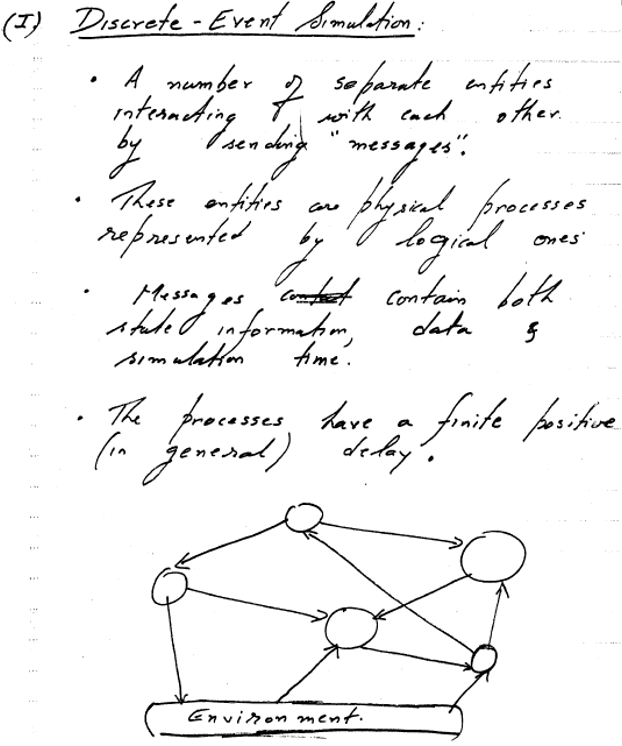 (I) Discrete - Event Simulation:
• A number of separate entities
interacting with each other
by sending "messages".
• These entities are physical processes
represented by logical ones
• Messages contain both
state information, data &
simulation time.
• The processes have a finite positive
(in general) delay.
Environment.